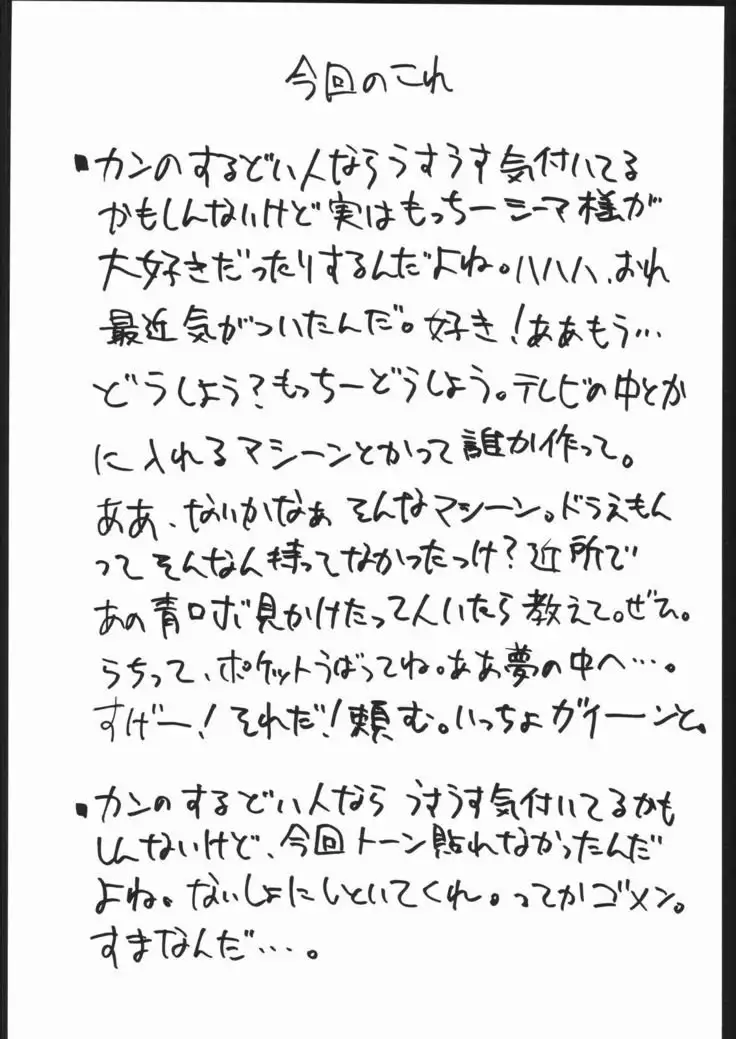 今回のこれ
▪カンのするどい人ならうすうす気付いてる
かもしんないけど実はもっちーシーマ様が
大好きだったりするんだよね。ハハハ、おれ
最近気がついたんだ。好き!ああもう…
どうしよう?もっちーどうしよう。テレビの中とか
に入れるマシーンとかって誰か作って。
ああ、ないかなぁ そんなマシーン。ドラえもん
ってそんなん持ってなかったっけ?近所で
あの青ロボ見かけたって人いたら教えて。ぜひ。
うちって、ポケットうばってね。ああ夢の中へ…。
すげー!それだ!頼む。いっちょガイーンと。
▪カンのするどい人なら うすうす気付いてるかも
しんないけど、今回トーン貼れなかったんだ
よね。ないしょにしといてくれ。ってかゴメン。
すまなんだ…。